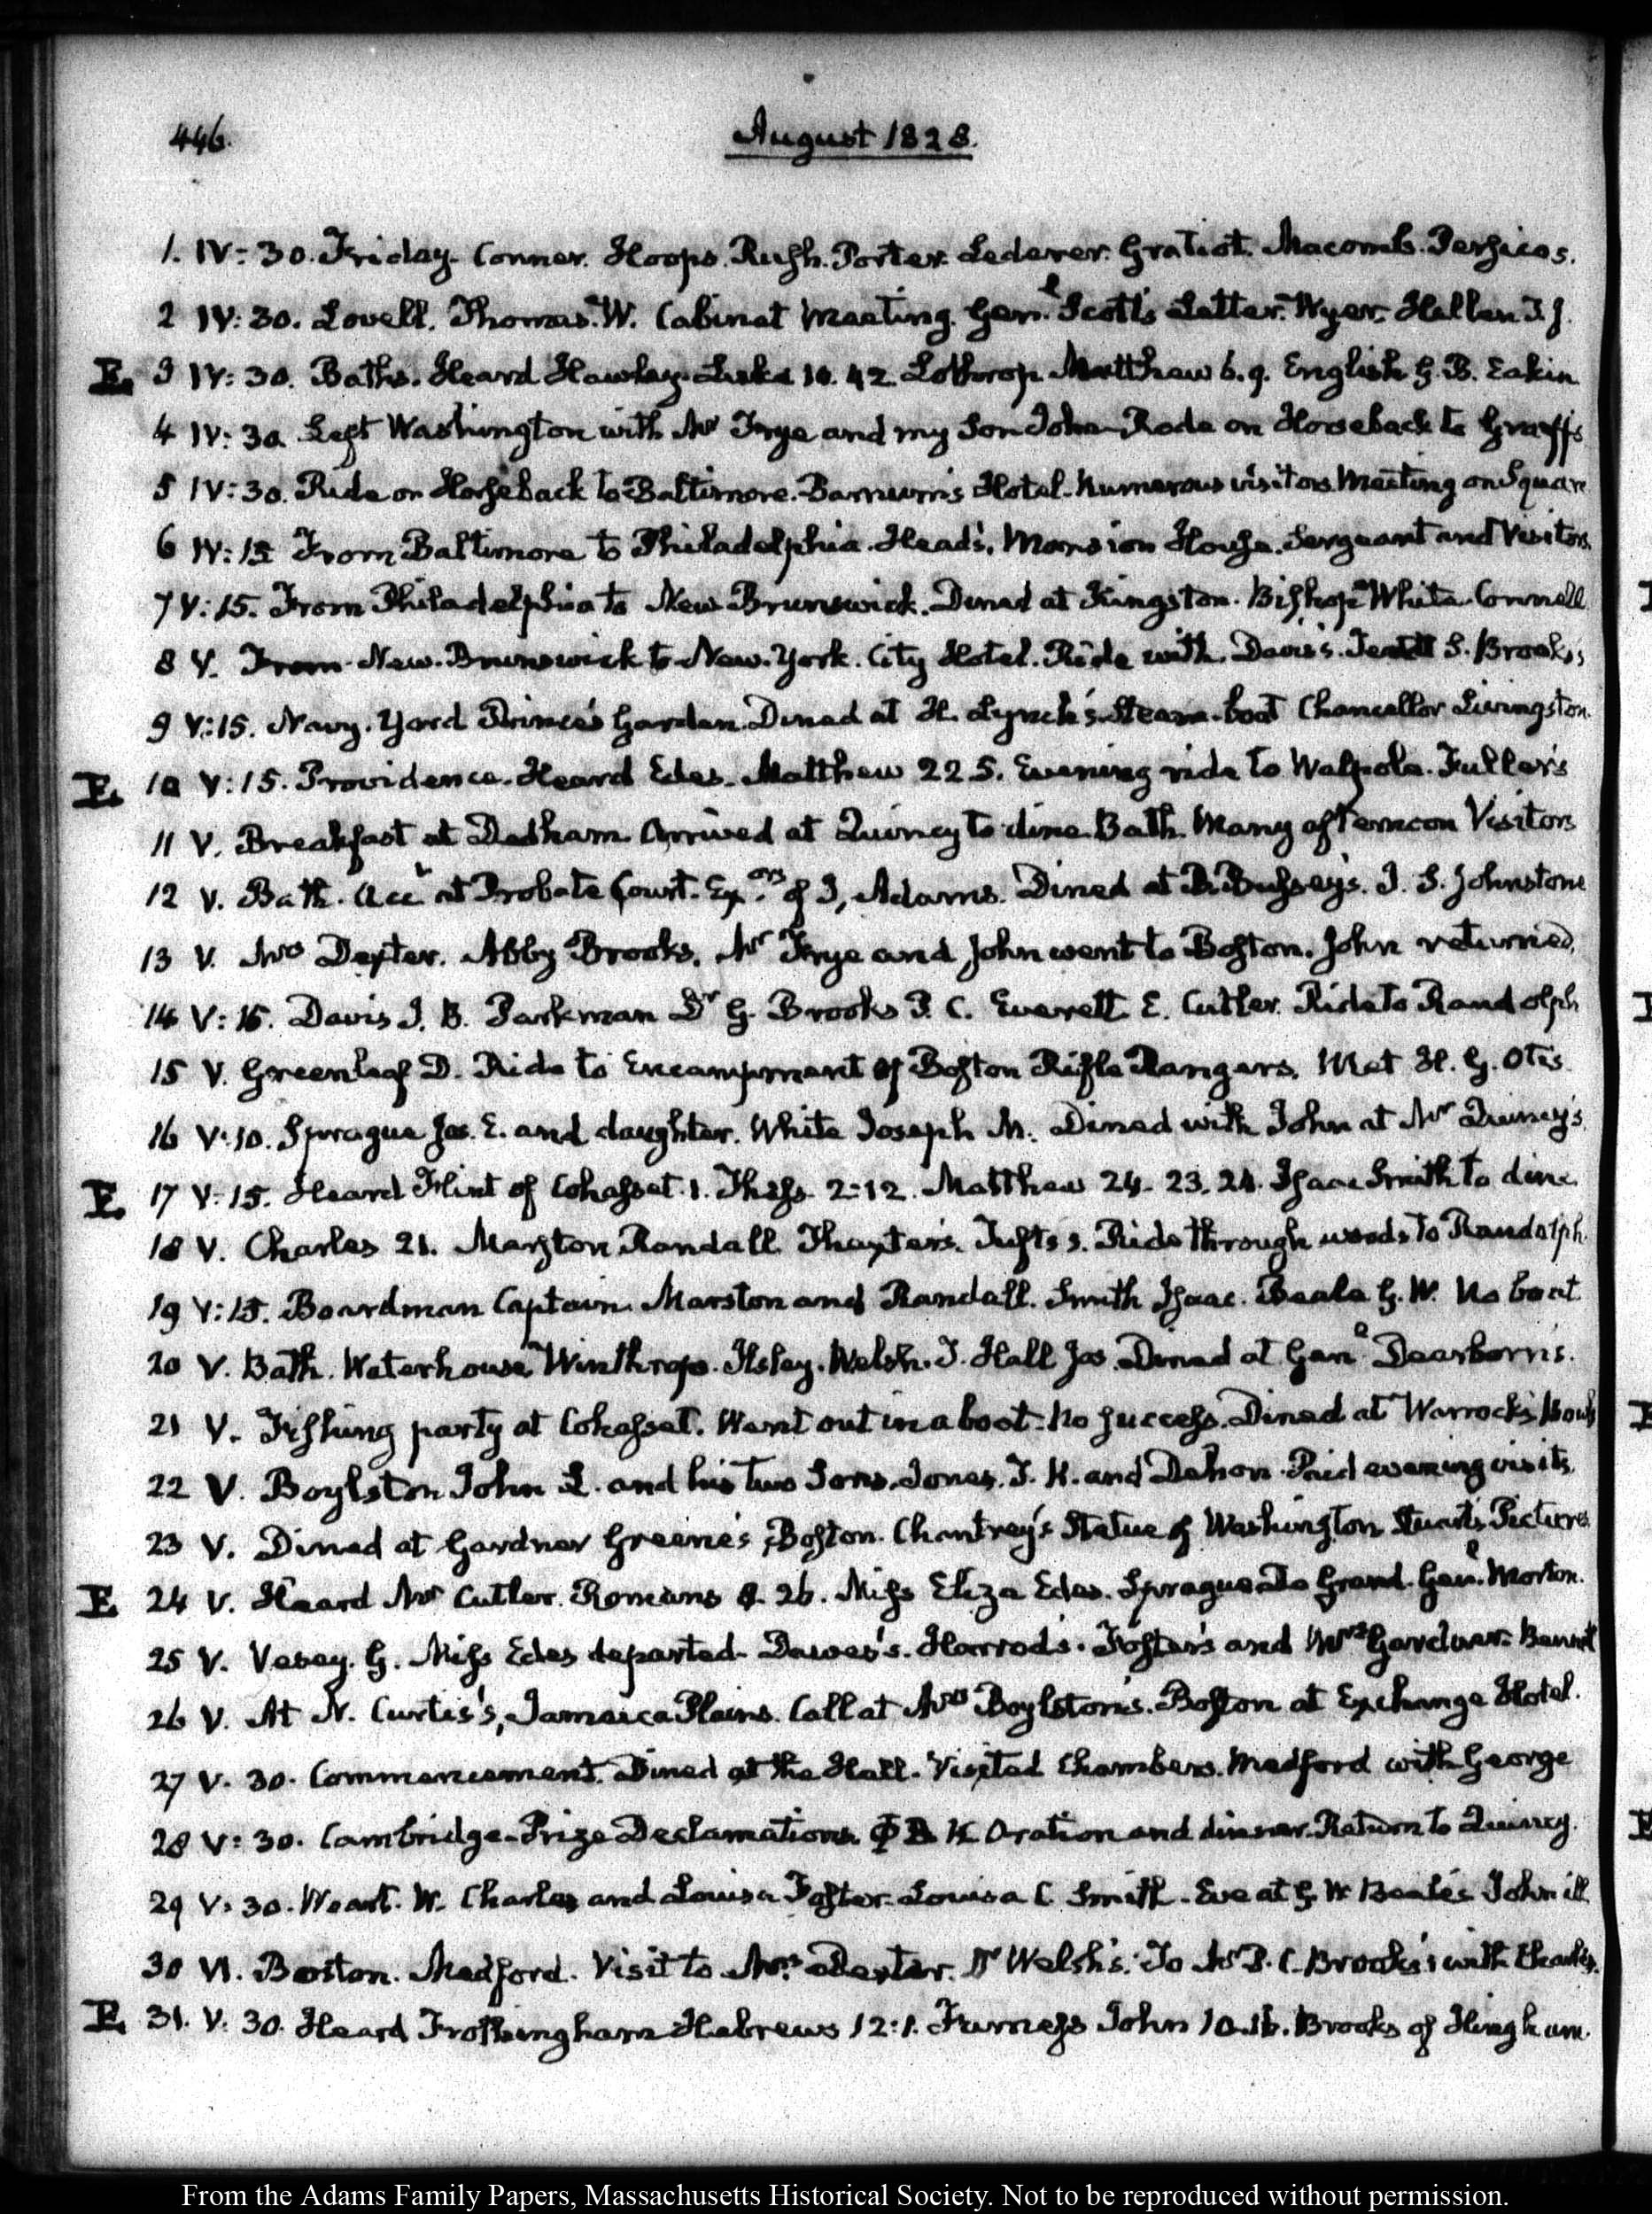 446.
August 1828.
1. IV: 30. Friday. Conner. Hoops. Rush. Porter. Lederer. Gratiot. Macomb. Persicos.
2 IV: 30. Lovell. Thomas. W. Cabinet Meeting. Genl. Scott's Letter. Wyer. Hellen J J.
E. 3 IV: 30. Baths. Heard Hawley. Luke 10. 42. Lothrop Matthew 6. 9. English G. B. Eakin
4 IV: 30. Left Washington with Mr Frye and my Son John. Rode on Horseback to Graeff's
5 IV: 30. Ride on Horseback to Baltimore. Barnum's Hotel. Numerous visitors. Meeting on Square
6 IV: 15 From Baltimore to Philadelphia. Head's, Mansion House. Sergeant and Visitors.
7 V: 15. From Philadelphia to New Brunswick. Dined at Kingston. Bishop White. Connell
8 V. From New-Brunswick to New-York. City Hotel. Ride with. Davis. S. Brooks's
9 V: 15. Navy-Yard Prince's Garden. Dined at H. Lynch's. Steam-boat Chancellor Livingston.
E. 10 V: 15. Providence. Heard Edes. Matthew 22 5. Evening ride to Walpole. Fuller's
11 V. Breakfast at Dedham. Arrived at Quincy to dine. Bath. Many afternoon Visitors
12 V. Bath. Acct at Probate Court. Exors of J, Adams. Dined at B. Bussey's. J. S. Johnstone
13 V. Mrs Dexter. Abby Brooks. Mr Frye and John went to Boston. John returned.
14 V: 15. Davis J. B. Parkman Dr G. Brooks P. C. Everett E. Cutler. Ride to Randolph
15 V. Greenleaf D. Ride to Encampment of Boston Rifle Rangers. Met H. G. Otis.
16 V: 10. Sprague Jos. E. and daughter. White Joseph M. Dined with John at Mr Quincy's.
E. 17 V: 15. Heard Flint of Cohasset. 1. Thess. 2:12. Matthew 24. 23, 24. Isaac Smith to dine.
18 V. Charles 21. Marston Randall. Thayter's. Tufts's. Ride through woods to Randolph.
19 V: 15. Boardman Captain. Marston and Randall. Smith Isaac. Beale G. W. No boat.
20 V. Bath. Waterhouse Winthrops. Ilsley. Welsh. T. Hall Jos. Dined at Genl Dearborn's.
21 V. Fishing party at Cohasset. Went out in a boat. No success. Dined at Warrock's House
22 V. Boylston John L. and his two Sons. Jones. T. K. and Dehon. Paid evening visits.
23 V. Dined at Gardner Greene's, Boston. Chantrey's Statue of Washington Stuart's Pictures
E. 24 V. Heard Mr Cutler. Romans 9. 26. Miss Eliza Edes. Sprague. Grand. Genl. Morton.
25 V. Vesey. G. Miss Edes departed. Dawes's. Harrod's. Foster's and Mrs Gardner.
26 V. At N. Curtis's, Jamaica Plains. Call at Mrs Boylston's. Boston at Exchange Hotel.
27 V. 30. Commencement. Dined at the Hall. Visited Chambers. Medford with George
28 V: 30. Cambridge. Prize Declamations. Φ B K Oration and dinner. Return to Quincy.
29 V: 30. W. Charles and Louisa Foster. Louisa C Smith. Eve at G. W Beale's John ill.
30 VI. Boston. Medford. Visit to Mrs. Dexter. Dr Welsh's. To Mr P. C. Brooks's with Charles.
E. 31. V: 30. Heard Frothingham Hebrews 12:1. Furness John 10.16. Brooks of Hingham.
From the Adams Family Papers, Massachusetts Historical Society. Not to be reproduced without permission.